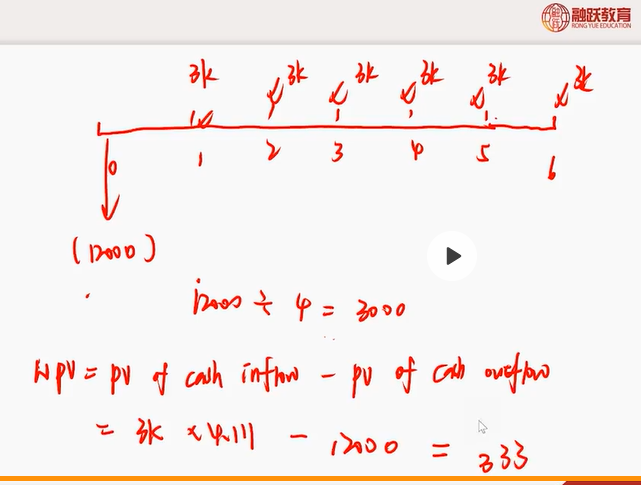 融跃教育
RONG YUE EDUCATION
3k 3k 3k 3k 3k 3k
0 1 2 3 4 5 6
(12000)
12000 ÷ 4 = 3000
NPV = PV of cash inflow - PV of cash outflow
= 3k × 4.111 - 12000 = 333